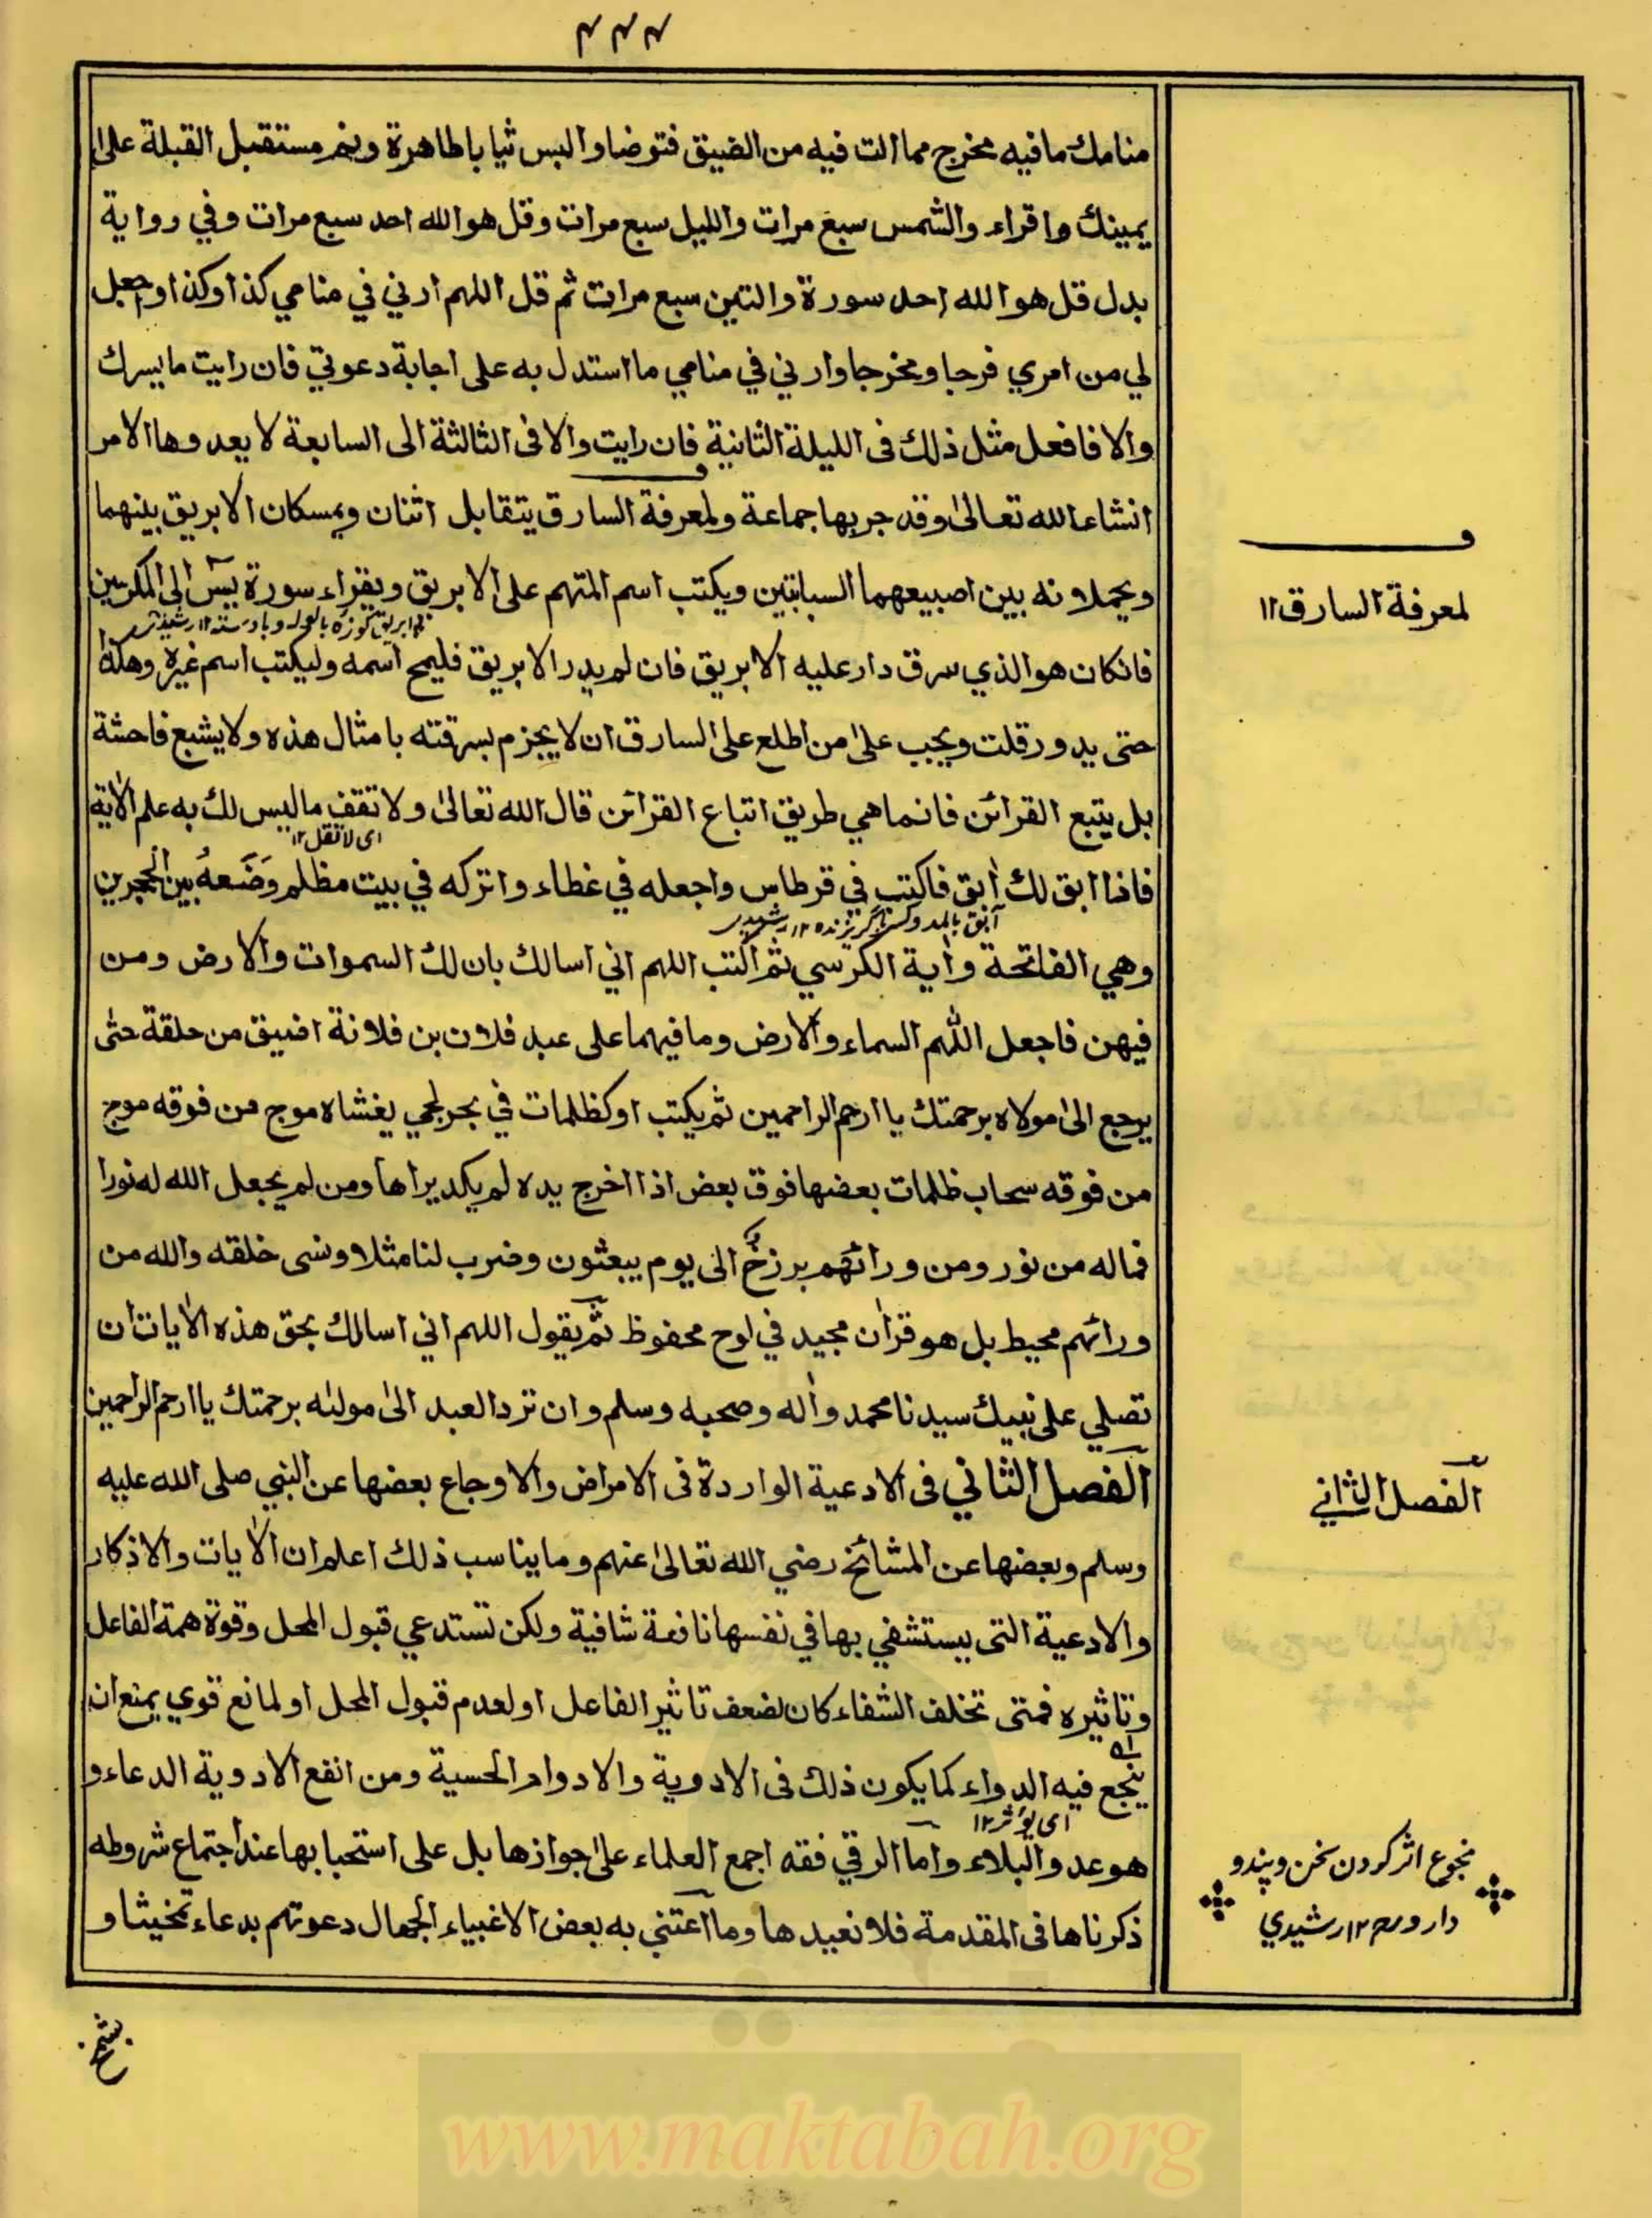 ٣٣٣
منامك مافيه مخرج مما انت فيه من الضيق فتوضا والبس ثيابا طاهرة ونم مستقبل القبلة على
يمينك واقراء والشمس سبع مرات والليل سبع مرات وقل هوالله احد سبع مرات وفي رواية
بدل قل هو الله احد سورة والتين سبع مرات ثم قل اللهم ارني في منامي كذا وكذا واجعل
لي من امري فرجا ومخرجا وارني في منامي ما استدل به على اجابة دعوتي فان رايت مايسرك
والا فافعل مثل ذلك فى الليلة الثانية فان رايت والا فى الثالثة الى السابعة لا يعدوها الامر
انشاءالله تعالىٰ وقد جربها جماعة ولمعرفة السارق يتقابل اثنان ويمسكان الابريق بينهما
لمعرفة السارق ١٢
ويحملانه بين اصبيعهما السبابتين ويكتب اسم المتهم على الابريق ويقراء سورة يسٓ الى المكرمين
فانكان هوالذي سرق دار عليه الابريق فان لم يدر الابريق فليمح اسمه وليكتب اسم غيره وهكذا
حتى يدور قلت ويجب على من اطلع على السارق ان لا يجزم بسرقته بامثال هذه ولايشيع فاحشة
بل يتبع القرائن فانما هي طريق اتباع القرائن قال الله تعالىٰ ولا تقف ماليس لك به علم الاٰية
اى لاتقل ١٢
فاذا ابق لك اٰبق فاكتب في قرطاس واجعله في غطاء واتركه في بيت مظلم وَضَعهُ بين الحجرين
آبق بالمد وكسر با گريزنده ١٢ رشيدى
وهي الفاتحة واٰية الكرسي ثم اكتب اللهم اني اسالك بان لك السموات والارض ومن
فيهن فاجعل اللّٰهم السماء والارض ومافيهما على عبد فلان بن فلانة اضيق من حلقة حتىٰ
يرجع الىٰ مولاه برحمتك يا ارحم الراحمين ثم يكتب اوكظلمات في بحر لجي يغشاه موج من فوقه موج
من فوقه سحاب ظلمات بعضها فوق بعض اذا اخرج يده لم يكد يراها ومن لم يجعل الله له نورا
فماله من نور ومن ورائهم برزخ الى يوم يبعثون وضرب لنا مثلا ونسى خلقه والله من
ورائهم محيط بل هو قراٰن مجيد في لوح محفوظ ثم يقول اللهم اني اسالك بحق هذه الاٰيات ان
تصلي على نبيك سيدنا محمد واٰله وصحبه وسلم وان ترد العبد الىٰ مولىٰه برحمتك ياارحم الراحمين
الفصل الثاني فى الادعية الواردة فى الامراض والاوجاع بعضها عن النبي صلى الله عليه
الفصل الثاني
وسلم وبعضها عن المشائخ رضي الله تعالىٰ عنهم وما يناسب ذلك اعلم ان الاٰيات والاذكار
والادعية التى يستشفي بها في نفسها نافعة شافية ولكن تستدعي قبول المحل وقوة همة الفاعل
وتاثيره فمتى تخلف الشفاء كان لضعف تاثير الفاعل او لعدم قبول المحل او لمانع قوي يمنع ان
ينجع فيه الدواء كما يكون ذلك فى الادوية والادواء الحسية ومن انفع الادوية الدعاء و
اى يؤثر ١٢
هو عدو البلاء واما الرقي فقد اجمع العلماء على جوازها بل على استحبابها عند اجتماع شروطه
نجوع اثر كردن سخن و پند و
دارو ١٢ رشيدي
ذكرناها فى المقدمة فلا نعيدها وما اعتني به بعض الاغبياء الجهال دعوتهم بدعاء تمخيثا و
www.maktabah.org